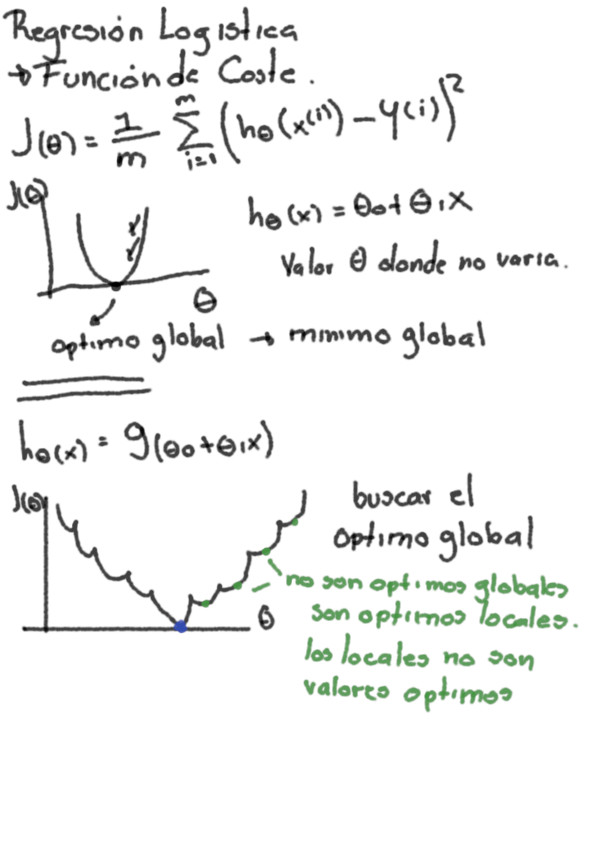 Regresión Logistica
→ Función de Coste.
J(θ) = 1/m ∑_{i=1}^{m} (hθ(x^(i)) - y(i))²
J(θ)
hθ(x) = θ0 + θ1x
Valor θ donde no varia.
θ
optimo global → minimo global
hθ(x) = g(θ0+θ1x)
J(θ)
buscar el
optimo global
θ
no son optimos globales
son optimos locales.
los locales no son
valores optimos